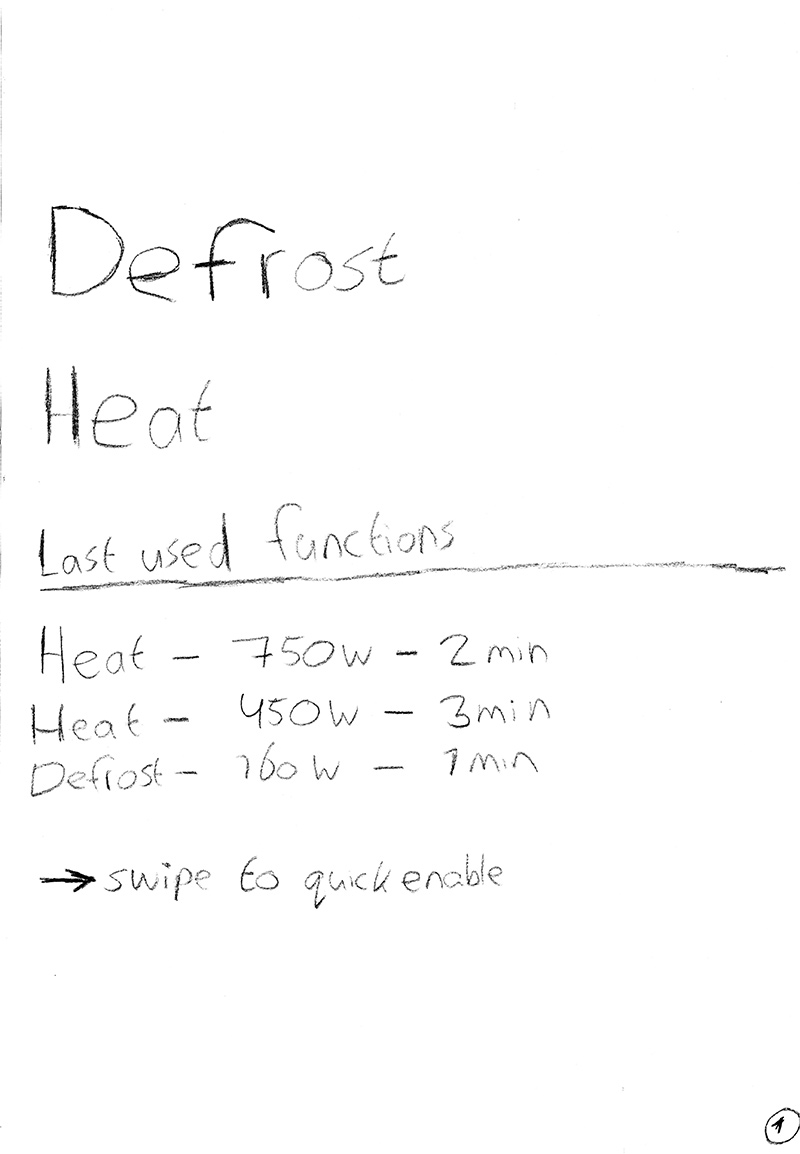 Defrost
Heat
Last used functions
Heat – 750W – 2min
Heat – 450W – 3min
Defrost – 160W – 1min
→ swipe to quick enable
1